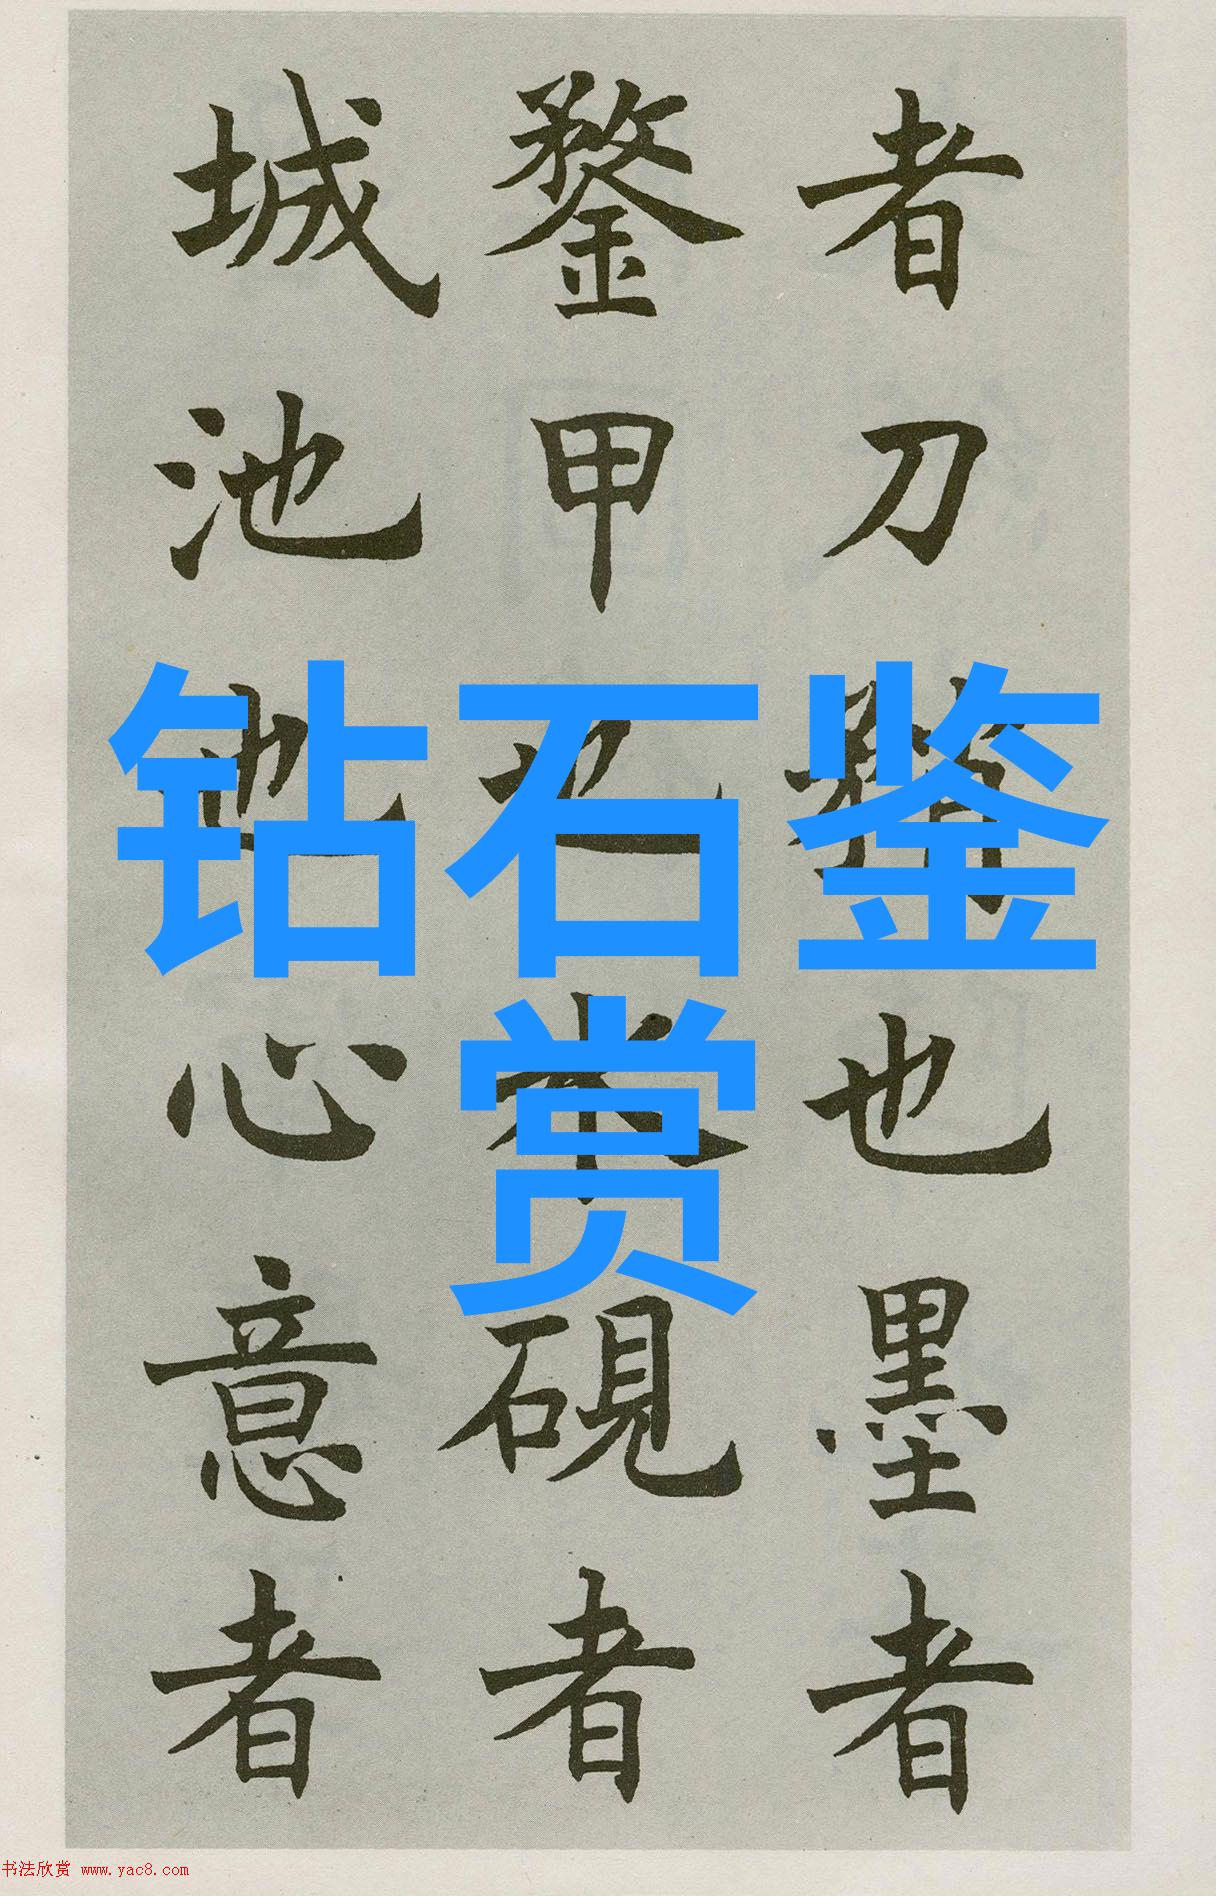 者刀矟也墨者
鍪甲也水硯者
城池也心意者
钻石鉴
赏
书法欣赏 www.yac8.com